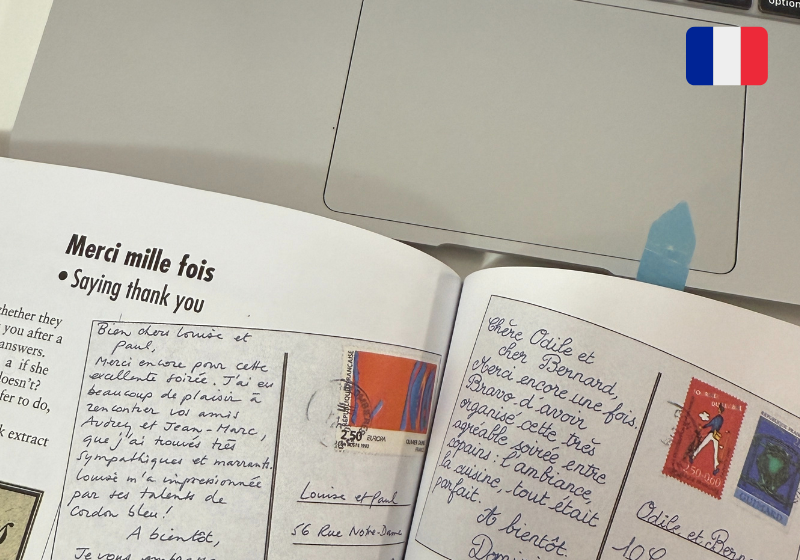 option
Merci mille fois
• Saying thank you
hether they
you after a
answers.
a if she
oesn't?
fer to do,
k extract
Bien chers Louise et
Paul,
Merci encore pour cette
excellente soirée. J'ai eu
beaucoup de plaisir à
rencontrer vos amis
Audrey et Jean-Marc,
que j'ai trouvés très
sympathiques et marrants.
Louise m'a impressionnée
par ses talents de
cordon bleu!
A bientôt,
Je vous
2,50
EUROPA
Louise et Paul
56 Rue Notre-Dame
Chère Odile et
cher Bernard,
Merci encore une fois.
Bravo d'avoir
organisé cette très
agréable soirée entre
copains: l'ambiance,
la cuisine, tout était
parfait.
A bientôt
2,50+0,60
Odile et Be